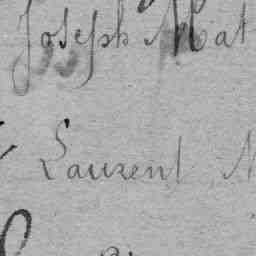 Joseph Mat
Laurent